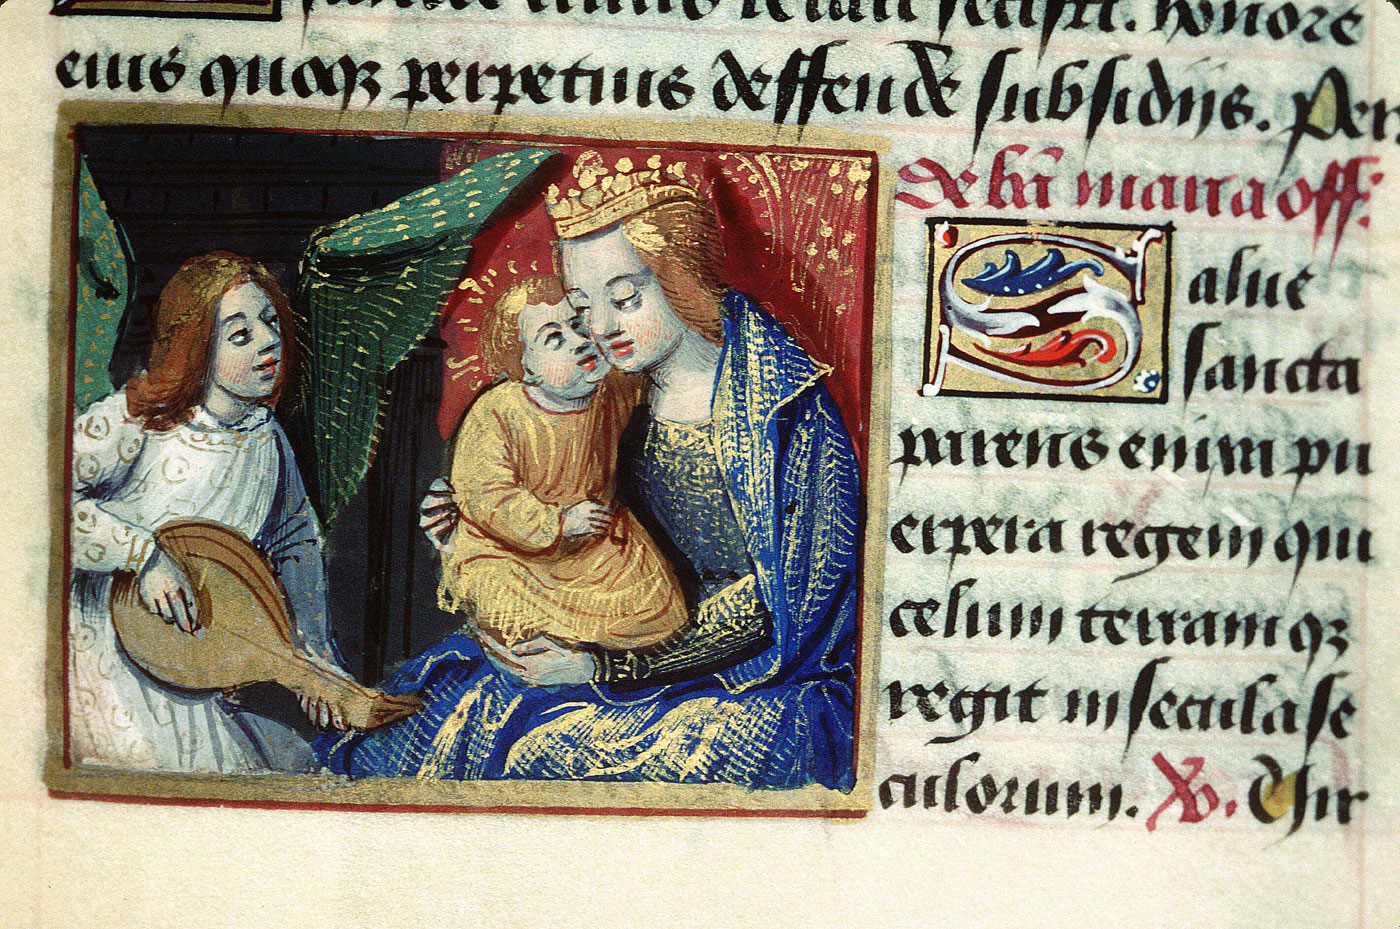 eius quoqꝫ perpetuis deffende subsidijs. Per
De bt̄ maria off:
Salue
sancta
parens enixa pu
erpera regem qui
celum terramqꝫ
regit in secula se
culorum. Xp. Chr